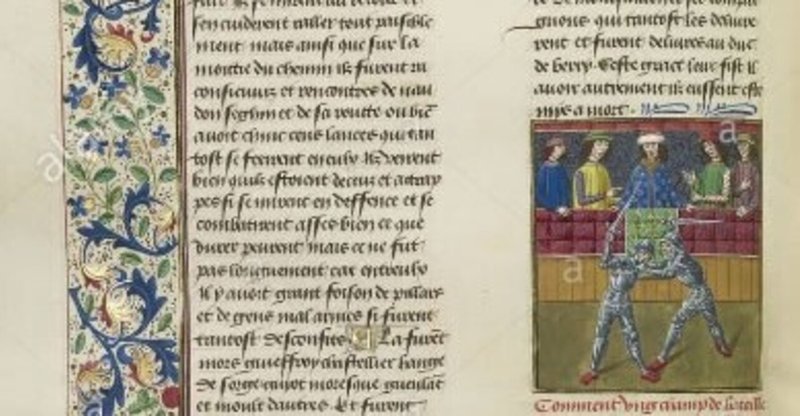 sen cuiderent raller tout paisible
ment mais ainsi que sur la
montee du chemin ilz furent ra
consieuuiz et rencontres de nau
don seghin et de sa routte ou bien
auoit cinnc cens lances qui tan
tost se freirent en eulx Ilz veirent
bien quilz estoient deceuz et attrap
pes si se mirent en deffence et se
combatirent asses bien ce que
durer peurent mais ce ne fut
pas longuement car entreulx
Il y auoit grant foison de pillars
et de gens mal armes si furent
tantost desconfits La furent
mors gieuffroy chastellier hange
de sorge guiot moresque
et moult dautres Et furent
gnons qui tantost les deliure
rent et furent deliures au duc
de berry Ceste grace leur fist il
auoir autrement ilz eussent este
mis a mort
Comment vng champ de bataille